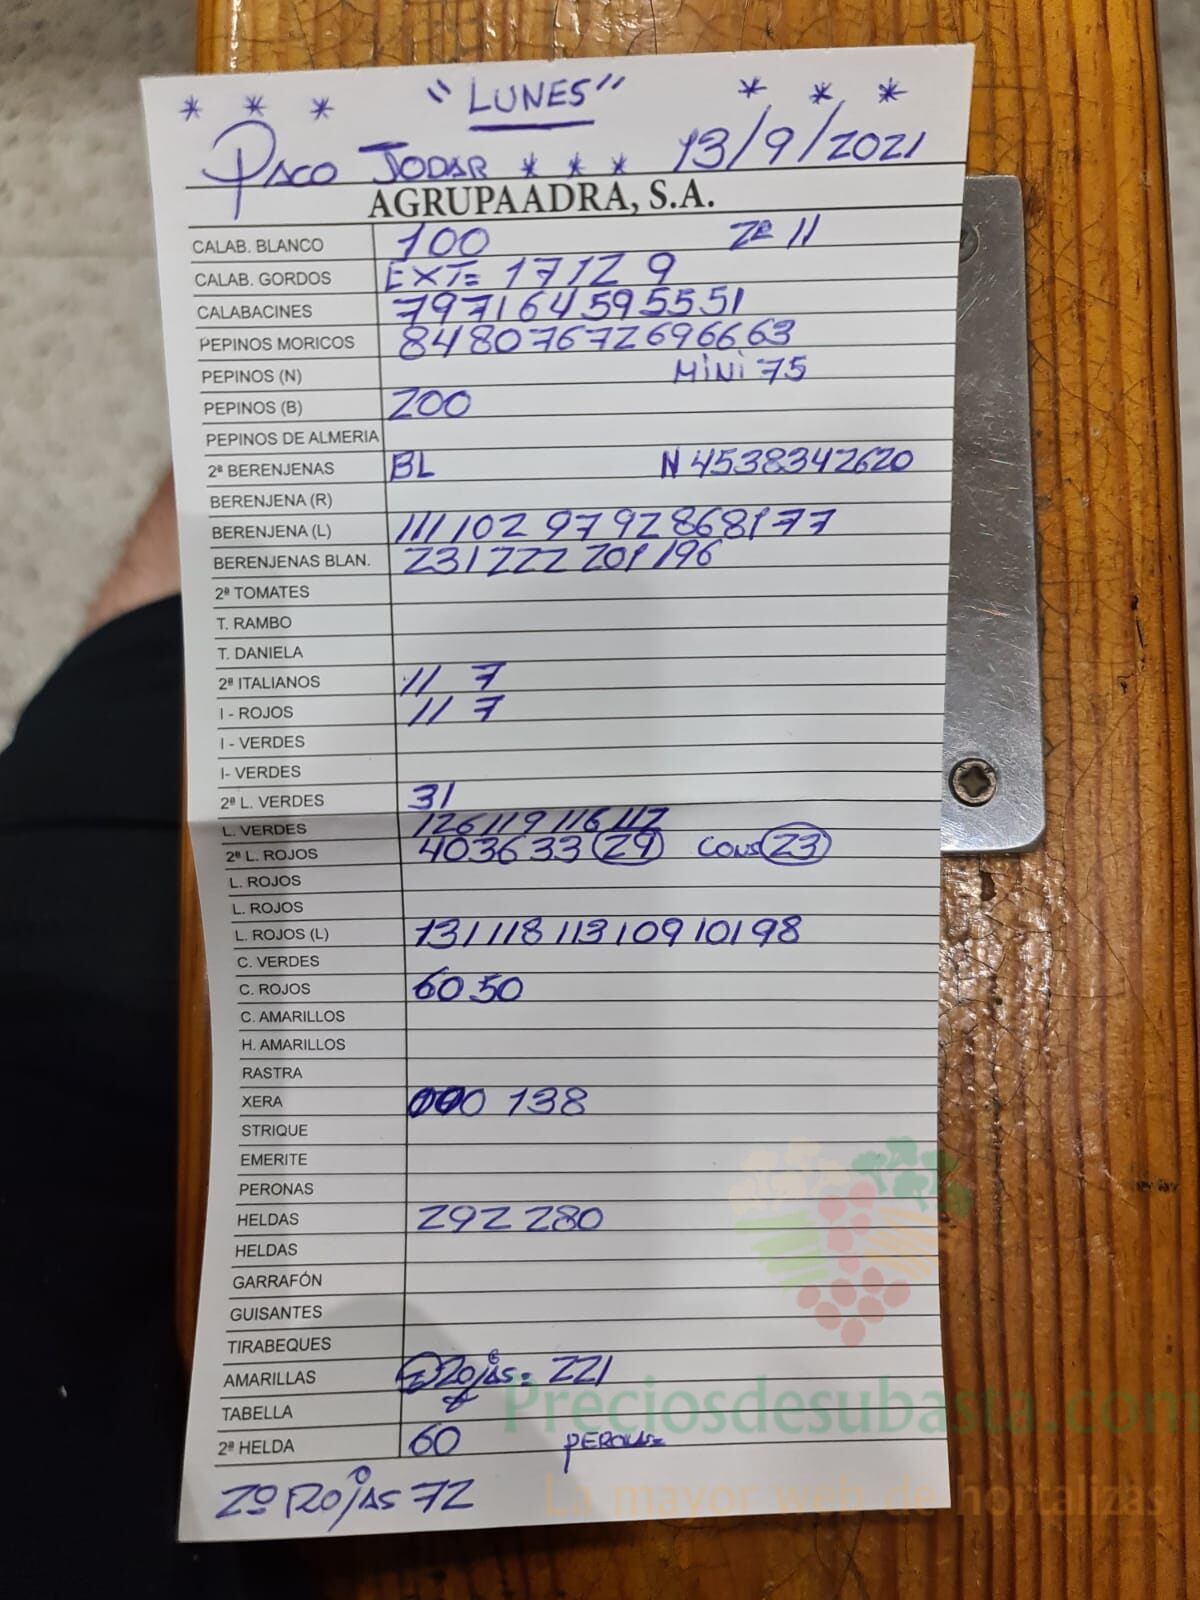 * * * "LUNES" * * *
PACO JODAR * * * 13/9/2021
AGRUPAADRA, S.A.
CALAB. BLANCO 100 2ª 11
CALAB. GORDOS EXT= 17 12 9
CALABACINES 79 71 64 59 55 51
PEPINOS MORICOS 84 80 76 72 69 66 63
PEPINOS (N) MINI 75
PEPINOS (B) 200
PEPINOS DE ALMERIA
2ª BERENJENAS BL N 45 38 34 26 20
BERENJENA (R)
BERENJENA (L) 111 102 97 92 86 81 77
BERENJENAS BLAN. 231 222 201 196
2ª TOMATES
T. RAMBO
T. DANIELA
2ª ITALIANOS 11 7
I - ROJOS 11 7
I - VERDES
I- VERDES
2ª L. VERDES 31
L. VERDES 126 119 116 112
2ª L. ROJOS 40 36 33 29 CONS 23
L. ROJOS
L. ROJOS
L. ROJOS (L) 131 118 113 109 101 98
C. VERDES
C. ROJOS 60 50
C. AMARILLOS
H. AMARILLOS
RASTRA
XERA 138
STRIQUE
EMERITE
PERONAS
HELDAS 292 280
HELDAS
GARRAFÓN
GUISANTES
TIRABEQUES
AMARILLAS ROJAS= 221
TABELLA
2ª HELDA 60 PERONAS=
2º ROJAS 72
Preciosdesubasta.com
La mayor web de hortalizas